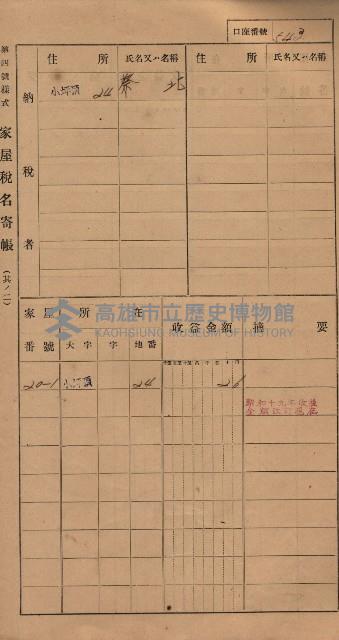 口座番號 543
第四號樣式 家屋稅名寄帳 (其ノ一)
住所 氏名又ハ名稱 住所 氏名又ハ名稱
納稅者
小坪頂 24 蔡 北
家屋番號 家屋所在 收益金額 摘要
大字 字 地番
20-1 小坪頂 24 26
昭和十九年收益
金額改訂
高雄市立歷史博物館
KAOHSIUNG MUSEUM OF HISTORY